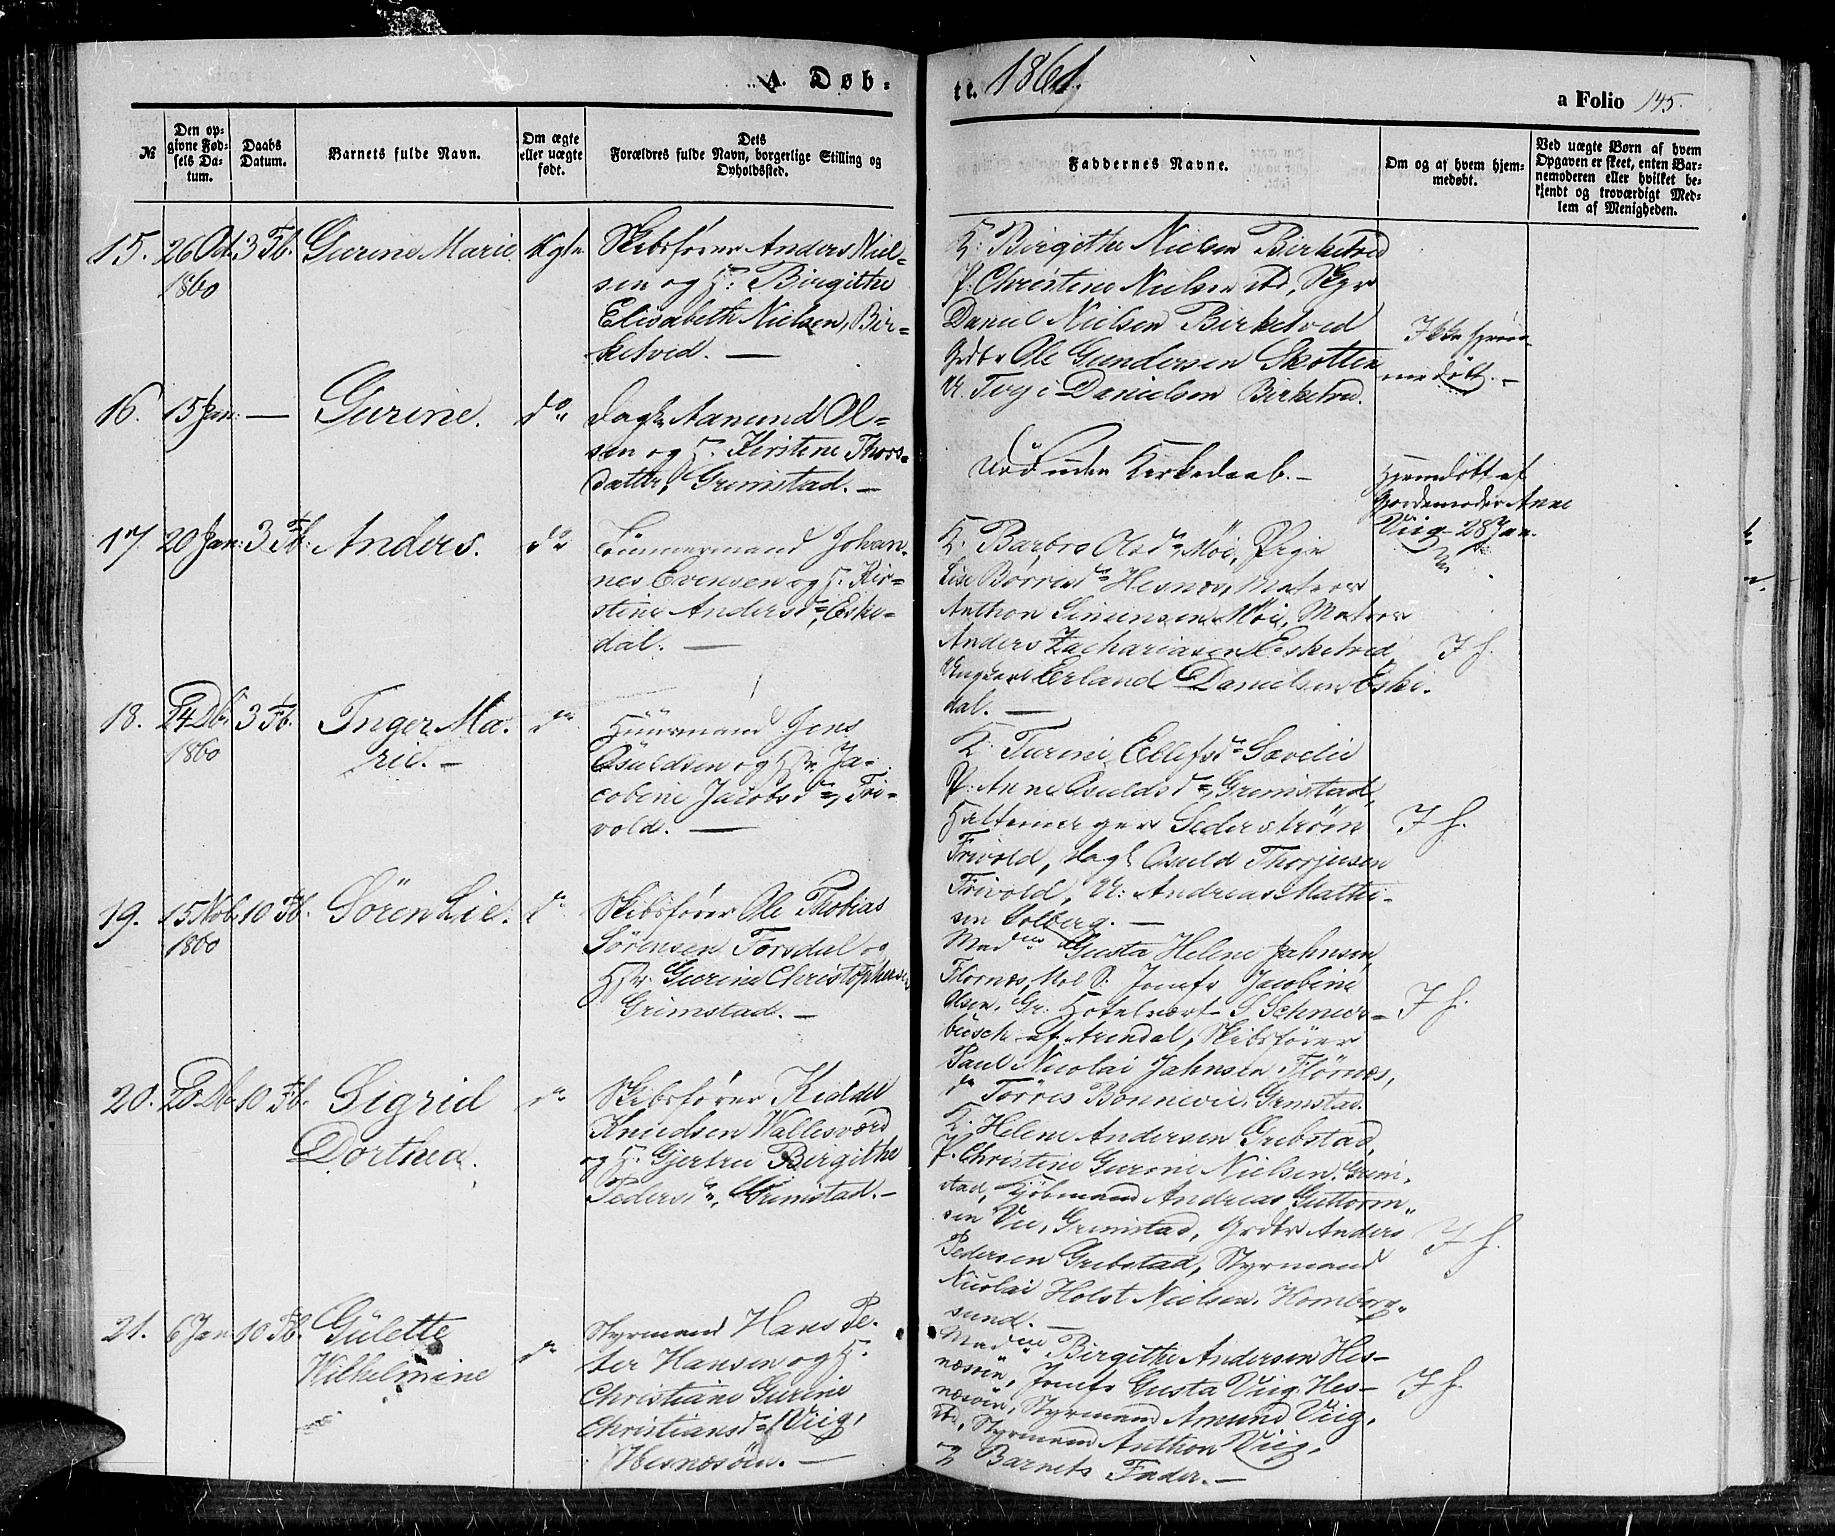 A. Døb-
te. 1861.
a Folio 145.
№
Den op-
givne Fød-
sels Da-
tum.
Daabs
Datum.
Barnets fulde Navn.
Om ægte
eller uægte
født.
Dets
Forældres fulde Navn, borgerlige Stilling og
Opholdssted.
Faddernes Navne.
Om og af hvem hjem-
medøbt.
Ved uægte Børn af hvem
Opgaven er skeet, enten Bar-
nemoderen eller hvilket be-
kjendt og troværdigt Med-
lem af Menigheden.
15. 26 Oct. 3 Fb. Gurine Marie Ægte
1860
Skibsfører Anders Niel-
sen og H. Birgithe
Elisabeth Nielsen, Bir-
ketved. —
K: Birgithe Nielsen Birketved
P: Christine Nielsen ibd,
Daniel Nielsen Birketved
Grdbr Ole Gundersen Skotten
U. Danielsen Birketved.
Ikke hjem-
medøbt. —
16. 15 Jan: — Gurine. do
Dagl: Aanund Ol-
sen og H. Kirstine Thors-
datter, Grimstad. —
Død uden Kirkedaab. —
Hjemdøbt af
Gjordemoder Anne
Viig 28 Jan.
17. 20 Jan: 3 Fb. Anders. do
Tømmermand Johan-
nes Evensen og H. Kir-
stine Andersd., Eske-
dal. —
K. Barbro Olsd., Møi, Pige
Lise Børresd. Hesnæs, Matros
Anthon Simensen Møi, Matros
Anders Zachariasen Esketved
Ungkarl Erland Danielsen Eske-
dal. —
I h.
18. 24 Db. 3 Fb. Inger Ma-
1860
rie. — do
Huusmand Jens
Osuldsen og Hstr. Ja-
cobine Jacobsd., Fri-
vold. —
K. Turine Ellefsd. Sævelie
P: Anne Osuldsd., Grimstad,
Hattemager Sederstrøm
Frivold, Dagl. Osuld Thorjusen
Frivold, U: Andreas Mathi-
sen Solberg. —
I h.
19. 15 Nob. 10 Fb. Sören Lie. do
1860
Skibsfører Ole Thobias
Sørensen Torsdal og
Hstr. Gurine Christophersd.
Grimstad. —
Madme Gusta Helene Jahnsen,
Jomfr Jacobine
Olsen, Gr. Hotelvært S Schnur-
busch af Arendal, Skibsfører
Paul Nicolai Jahnsen
do Törres Bonnevie, Grmstad.
I h.
20. 28 Db. 10 Fb. Sigrid
Dorthea. do
Skibsfører Kieddel
Knudsen Wallesværd
og H. Gjertru Birgithe
Pedersd., Grimstad. —
K. Helene Andersen Grebstad,
P. Christine Gurine Nielsen, Grim-
stad, Kjöbmand Andreas Guttorm-
sen Vie, Grimstad, Grdbr Anders
Pedersen Grebstad, Styrmand
Nicolai Holst Nielsen, Homborg-
sund. —
I h.
21. 6 Jan 10 Fb. Gülette
Wilhelmine do
Styrmand Hans Pe-
ter Hansen og H.
Christiane Gurine
Christiansd. Viig,
Hesnæsöen. —
Madme Birgithe Andersen Hes-
næsöen, Jomfr Gusta Viig, Hes-
næsöen, Styrmand Amund Viig,
ibd, Styrmand Anthon Viig,
og Barnets Fader. —
I h.